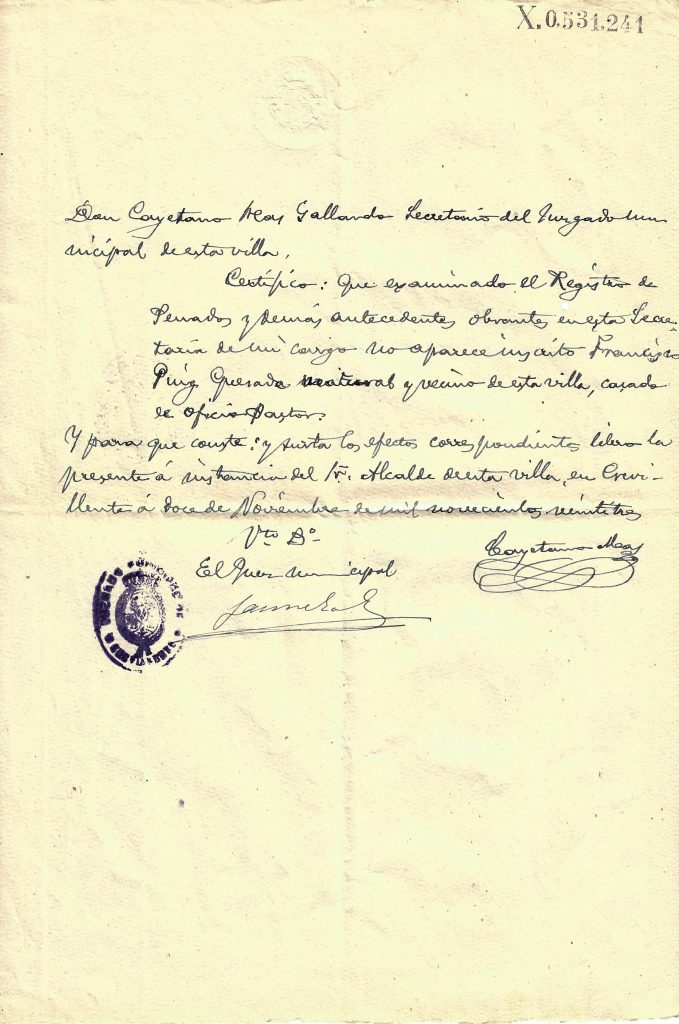 X.0.531.241
Don Cayetano Mas Gallardo Secretario del Juzgado mu-
nicipal de esta villa.
Certifico: Que examinado el Registro de
Penados y demás antecedentes obrantes en esta Secre-
taría de mi cargo no aparece inscrito Francisco
Puig Quesada natural y vecino de esta villa, casado
de oficio Pastor.
Y para que conste y surta los efectos correspondientes libro la
presente á instancia del Sr. Alcalde de esta villa, en Crevi-
llente á doce de Noviembre de mil novecientos veintitres
Vto Bº
Cayetano Mas
El Juez municipal